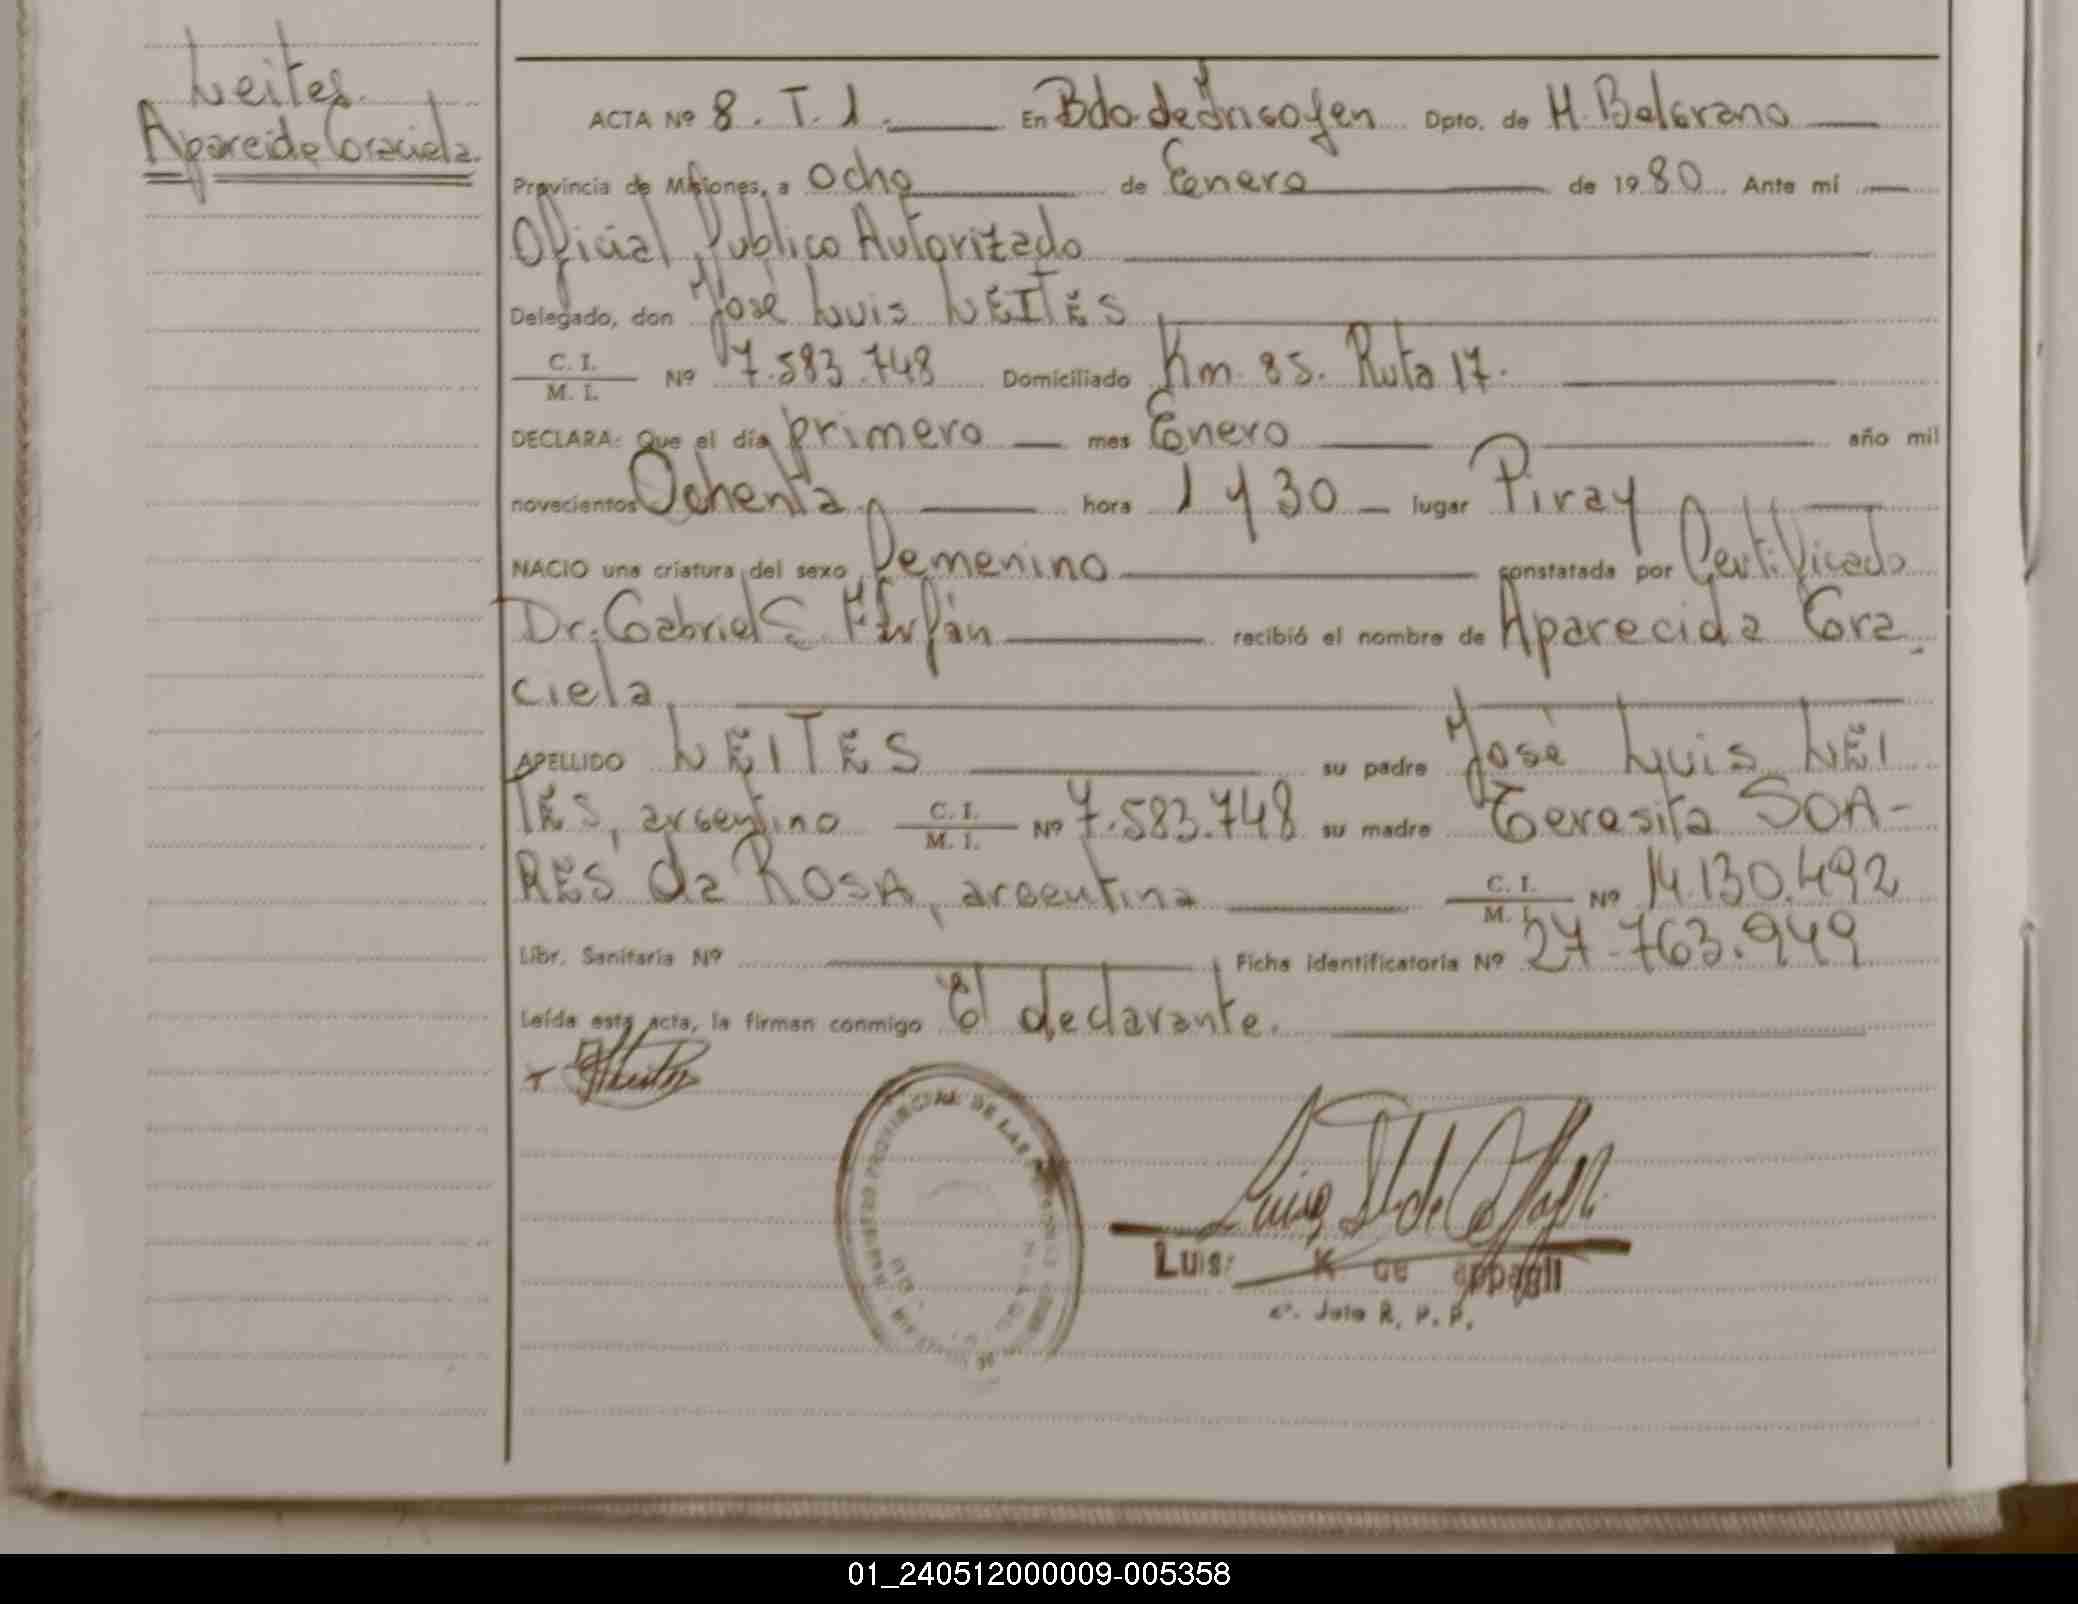 Leites
Aparecida Graciela
ACTA Nº 8. T. 1. En Bdo. de Irigoyen Dpto. de M. Belgrano
Provincia de Misiones, a Ocho de Enero de 1980 Ante mí
Oficial Publico Autorizado
Delegado, don José Luis LEITES
C. I.
M. I. Nº 7.583.748 Domiciliado Km. 85. Ruta 17.
DECLARA: Que el día primero mes Enero año mil
novecientos Ochenta hora 1 y 30 lugar Piray
NACIO una criatura del sexo Femenino constatada por Certificado
Dr. Gabriel Farfán recibió el nombre de Aparecida Gra
ciela
APELLIDO LEITES su padre José Luis LEI
TES, argentino C. I. M. I. Nº 7.583.748 su madre Teresita SOA-
RES da ROSA, argentina C. I. M. I. Nº 14.130.492
Libr. Sanitaria Nº Ficha identificatoria Nº 27.763.949
Leída esta acta, la firman conmigo El declarante.
PROVINCIAL DE LAS
Luis
R. P. P.
01_240512000009-005358